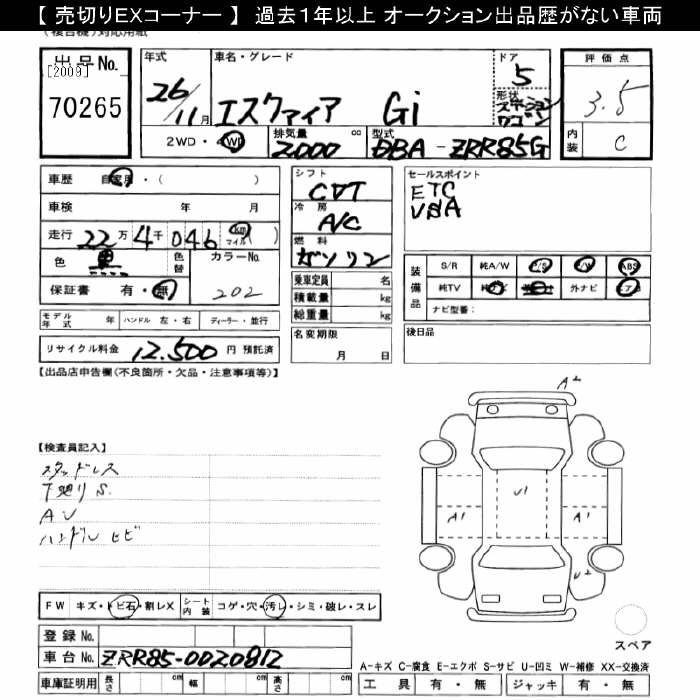 【 売切りEXコーナー 】 過去１年以上 オークション出品歴がない車両
出品No.
[2009]
70265
年式
26/11月
車名・グレード
エスクァイア Gi
ドア
5
形状
ステーションワゴン
評価点
3.5
内装
C
2WD・4WD
排気量
2000 cc
型式
DBA-ZRR85G
車歴 自家用・( )
車検 年 月
走行 22万4千046 km マイル ( )
色 黒 色替 カラーNo. 202
保証書 有・無
モデル年式 年 ハンドル 左・右 ディーラー・並行
リサイクル料金 12,500 円 預託済
シフト
CVT
冷房
A/C
燃料
ガソリン
乗車定員 名
積載量 kg
総重量 kg
名変期限
月 日
セールスポイント
ETC
VSA
装備品
S/R 純A/W P/S P/W ABS
純TV 外ナビ エアB
ナビ型番:
後日品
【出品店申告欄(不良箇所・欠品・注意事項等)】
【検査員記入】
スタッドレス
下廻りS.
AU
ハンドルヒビ
A2
U1
A1
A1
U2
FW キズ・トビ石・割レX シート内装 コゲ・穴・汚レ・シミ・破レ・スレ
登録No.
車台No. ZRR85-0020812
車庫証明用 長さ cm 幅 cm 高さ cm
スペア
A-キズ C-腐食 E-エクボ S-サビ U-凹ミ W-補修 XX-交換済
工具 有・無 ジャッキ 有・無